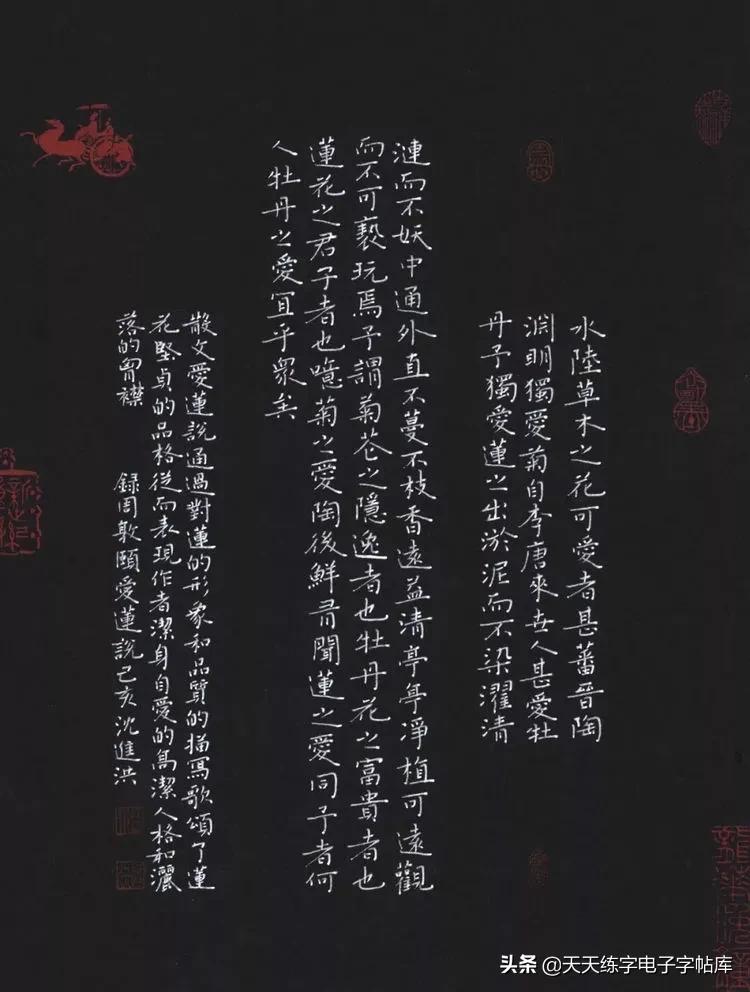 水陸草木之花可愛者甚蕃晉陶
淵明獨愛菊自李唐來世人甚愛牡
丹予獨愛蓮之出淤泥而不染濯清
漣而不妖中通外直不蔓不枝香遠益清亭亭淨植可遠觀
而不可褻玩焉予謂菊花之隱逸者也牡丹花之富貴者也
蓮花之君子者也噫菊之愛陶後鮮有聞蓮之愛同予者何
人牡丹之愛宜乎衆矣
散文愛蓮說通過對蓮的形象和品質的描寫歌頌了蓮
花堅貞的品格從而表現作者潔身自愛的高潔人格和灑
落的胷襟 錄周敦頤愛蓮說己亥沈進洪
头条 @天天练字电子字帖库